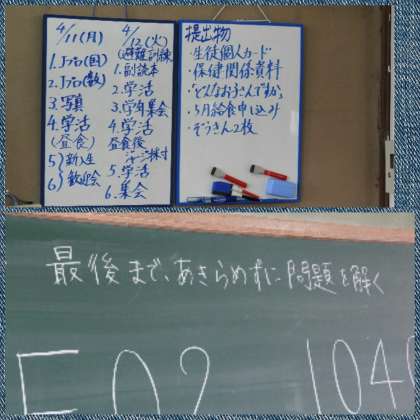 4/11(月)
1. Jプロ(国)
2. Jプロ(数)
3. 写真
4. 学活
(昼食)
5 ) 新入生
6 ) 歓迎会
4/12(火)
(避難訓練)
1. 副読本
2. 学活
3. 学年集会
4. 学活
昼食後
5. 学活
6. 集会
提出物
・生徒個人カード
・保健関係資料
・どんなおうさんですか。
・5月給食申し込み
・ぞうきん2枚
最後まで、あきらめずに問題を解く